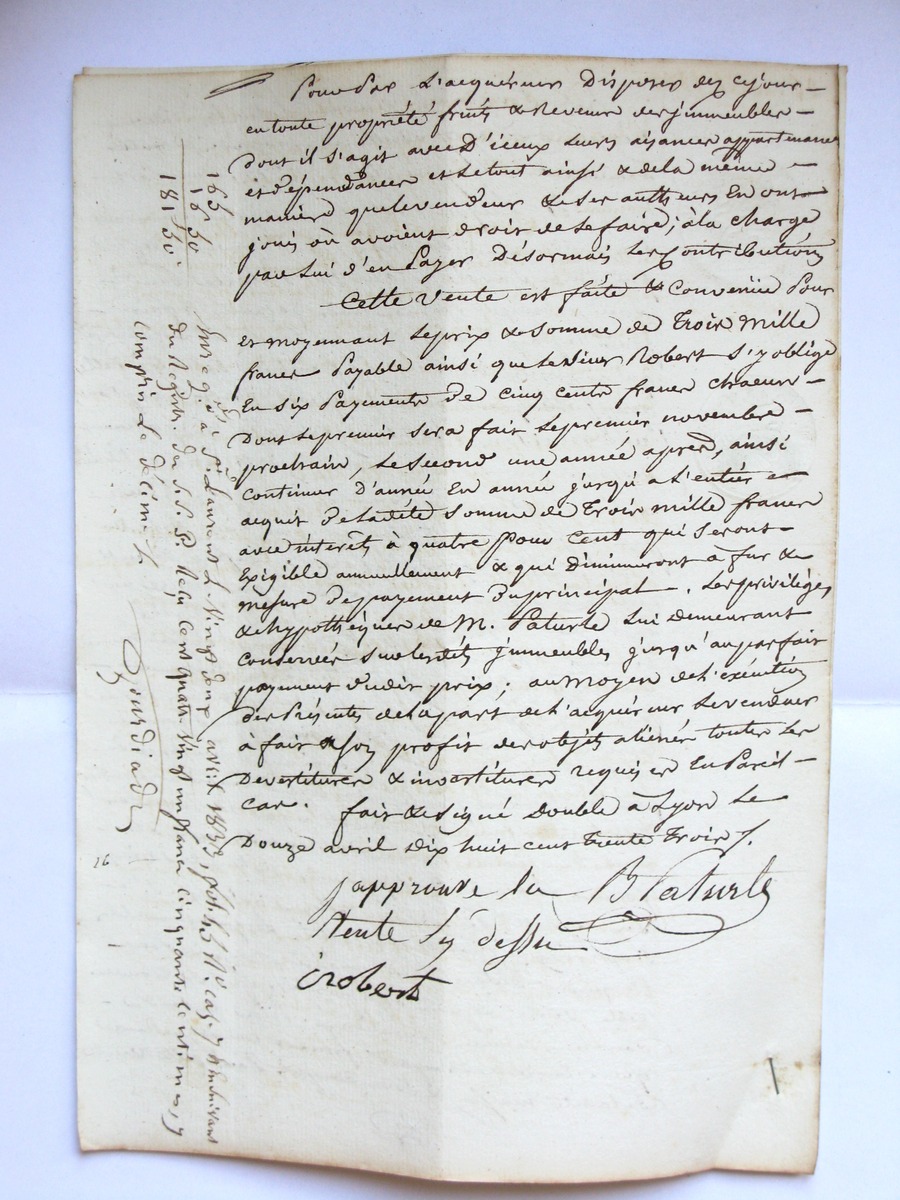 Pour Par L'acquéreur Disposer dez cejour
en toute propriété fruits & Revenu des jmmeubles
dont il s'agit avec D'iceux leurs aisances appartenances
et dépendances et le tout ainsi & de la même
manière que le vendeur & ses autheurs En ont
joui où avoient droit de le faire; à la charge
par Lui d'en Payer Désormais les Contributions
Cette Vente est faite & Convenüe Pour
et moyennant le prix & somme de Trois Mille
francs Payable ainsi que le sieur Robert s'y oblige
En six Payements de cinq cents francs chacun
Dont le premier sera fait le premier novembre
prochain, le second une année après, ainsi
Continuer D'année En année jusqu'a L'entier
acquit de ladite somme de Trois mille francs
avec intérêts à quatre pour Cent qui seront
Exigible annuellement & qui diminueront à fur &
mesure de payement Du principal. Les privilèges
& hypothèques de M. Paturle Lui demeurant
Conservés sur lesdits jmmeubles jusqu'au parfait
payement dudit prix; au moyen de l'exécution
des Présentes de la part de L'acquéreur Le vendeur
à fait & son profit des objets aliénés toutes les
Devestitures & investitures requises En Pareil
Cas.
fait & signé Double à Lyon Le
Douze avril Dix huit cent Trente Trois
japprouve la B Paturle
Vente sy dessu
robert
165
16 50
181 50
Enreg. à St Laurent Le Vingt deux avril 1833, fol. 45 Ro cas. 7 & suivans
du Registre des S. S. P. Reçu Cent quatre Vingt un francs cinquante Centimes, y
compris le décime
26